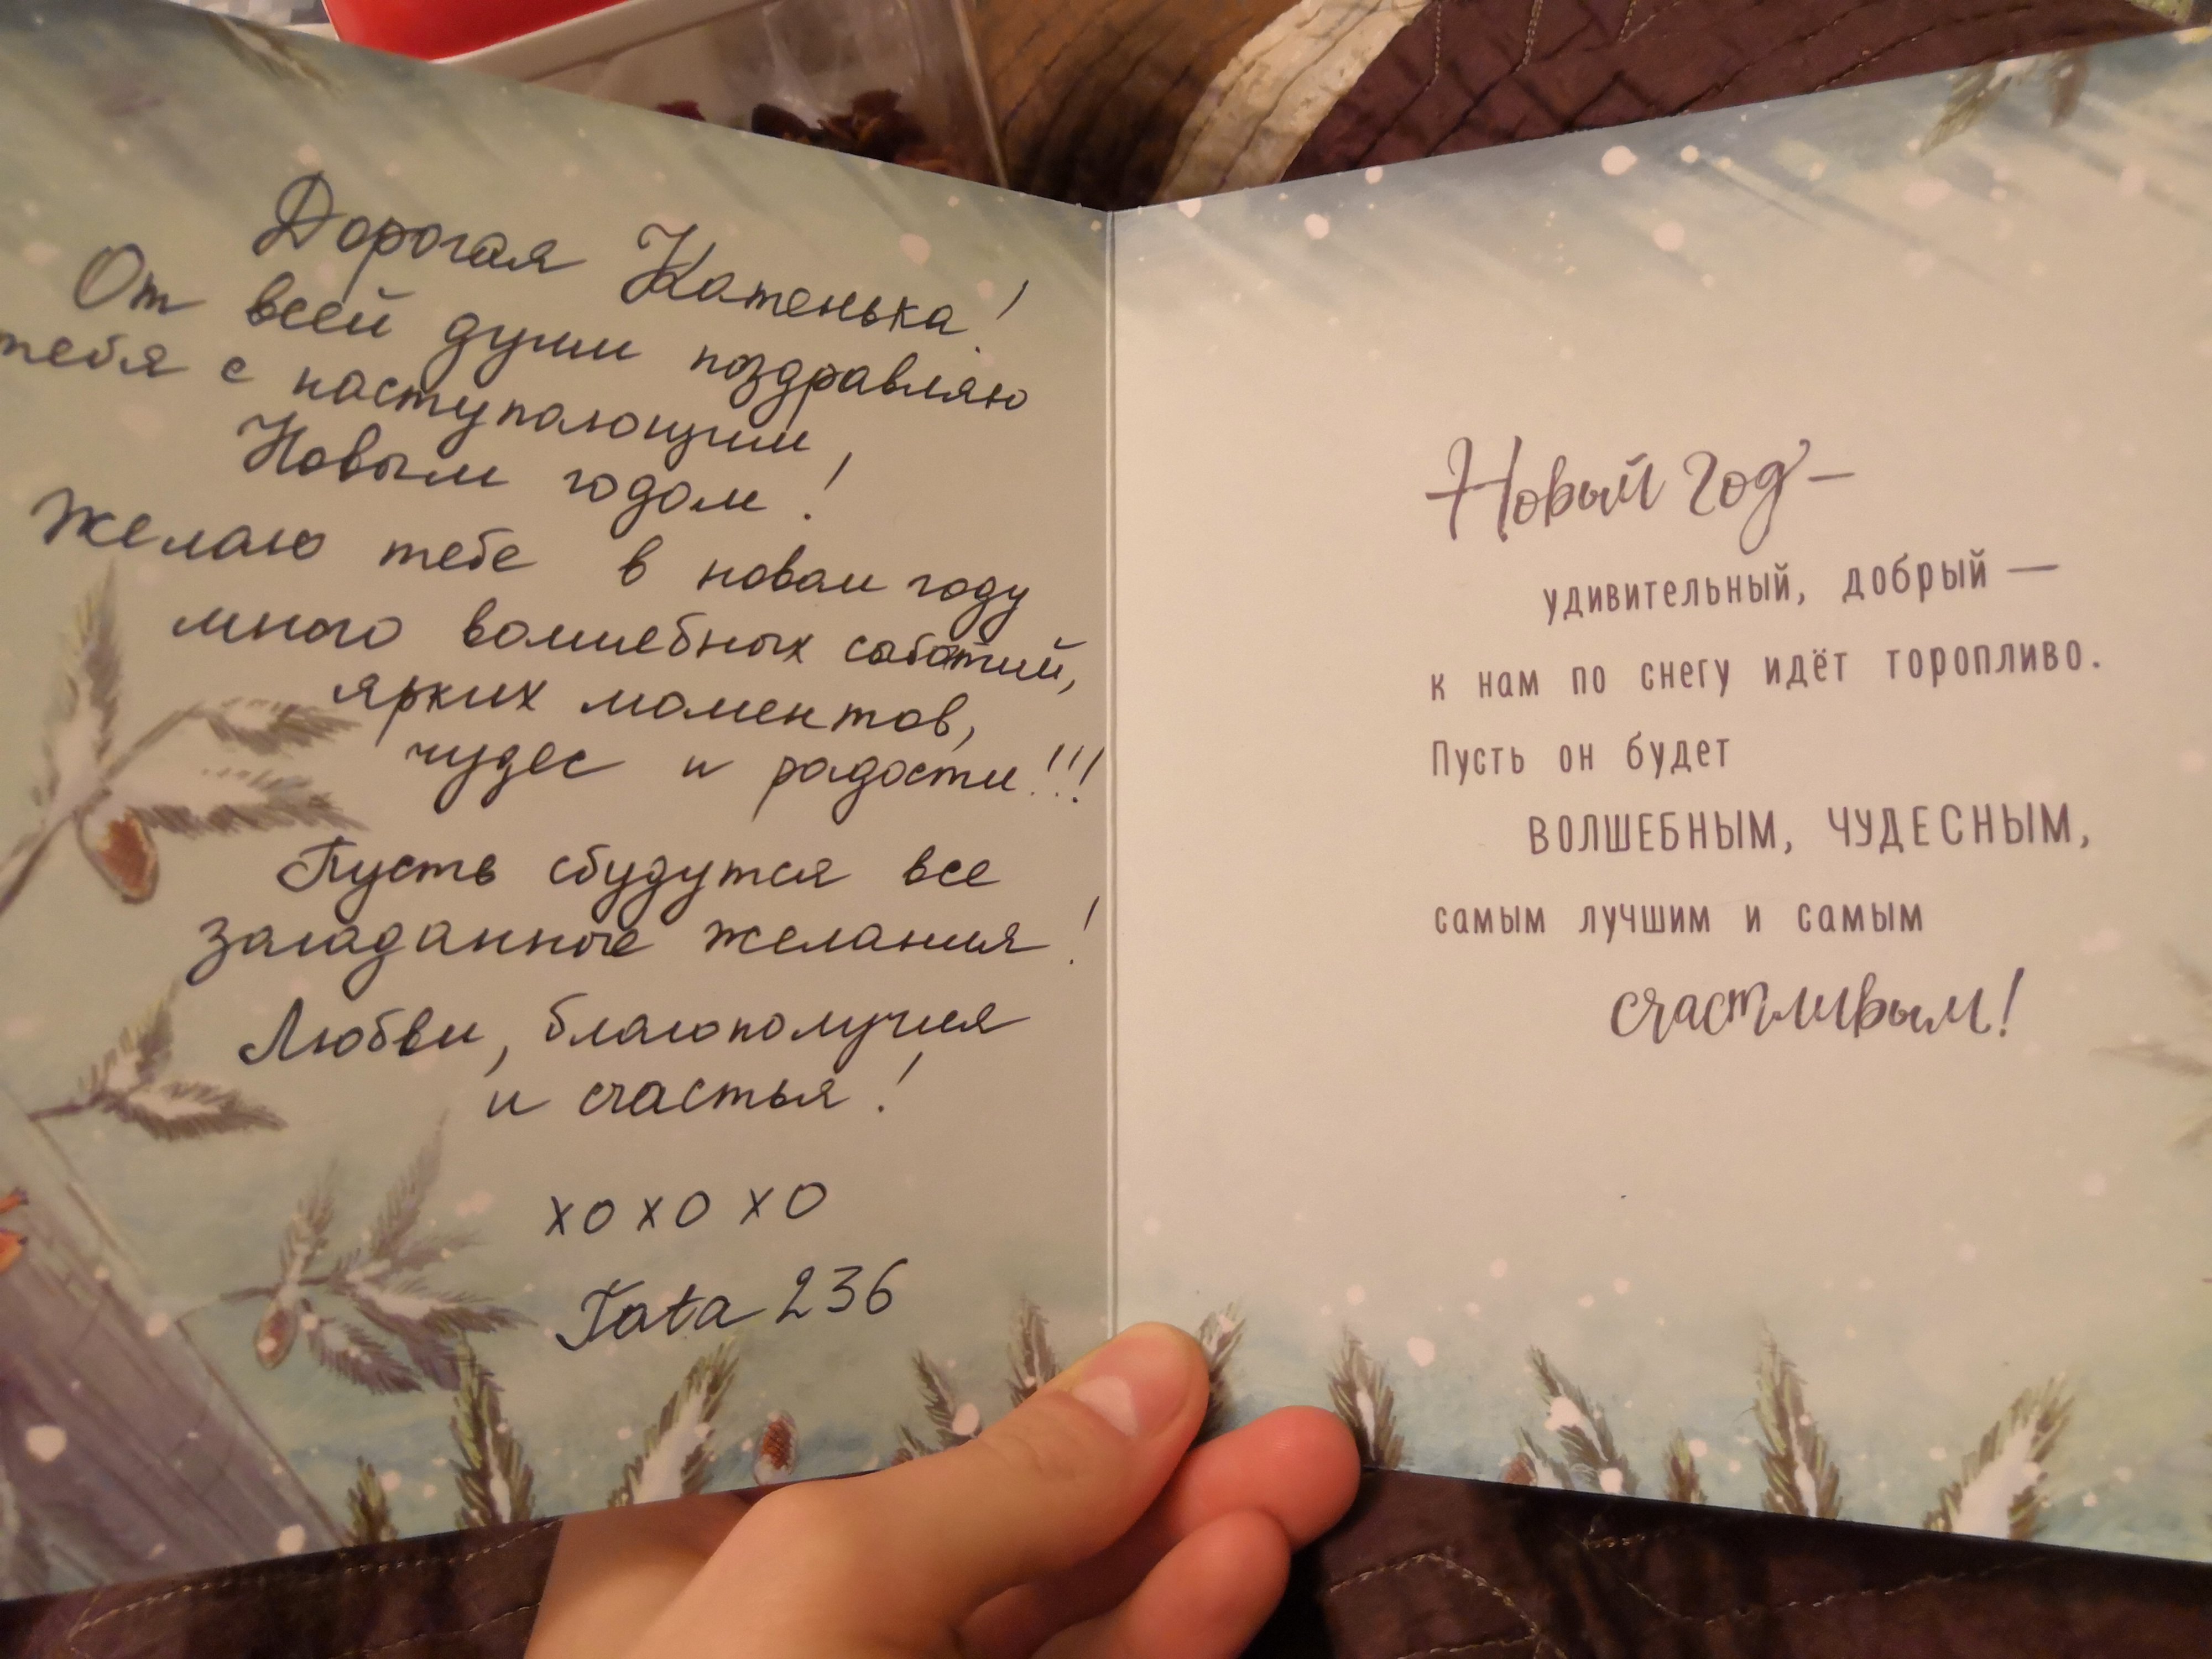 Дорогая Катенька!
От всей души поздравляю
тебя с наступающим
Новым годом!
Желаю тебе в новом году
много волшебных событий,
ярких моментов,
чудес и радости!!!
Пусть сбудутся все
загаданные желания!
Любви, благополучия
и счастья!
хо хо хо
Tata 236
Новый год —
удивительный, добрый —
к нам по снегу идёт торопливо.
Пусть он будет
ВОЛШЕБНЫМ, ЧУДЕСНЫМ,
самым лучшим и самым
счастливым!